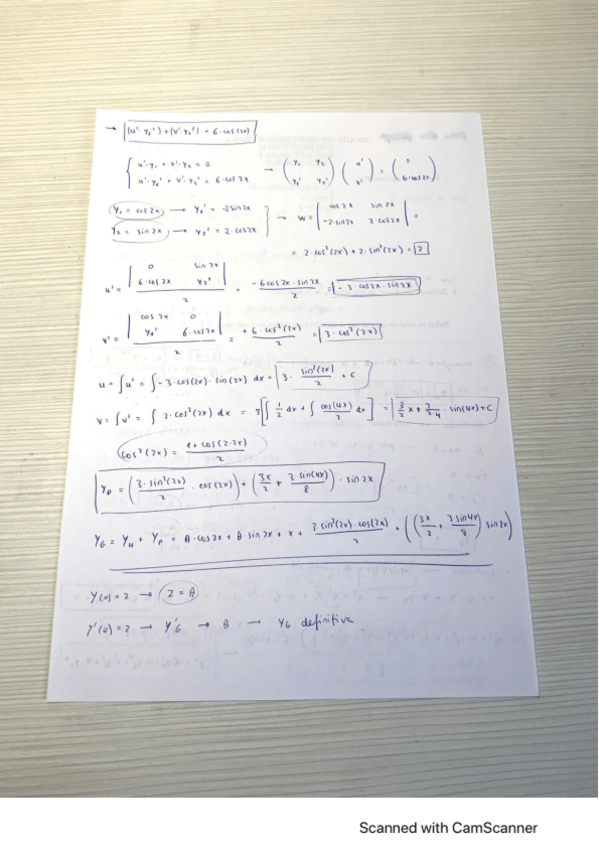 → (u'·y₁') + (v'·y₂') = 6·cos(2x)
{ u'·y₁ + v'·y₂ = 0
u'·y₁' + v'·y₂' = 6·cos2x → (y₁ y₂ / y₁' y₂') (u' / v') = (0 / 6·cos2x)
y₁ = cos2x → y₁' = -2sin2x
y₂ = sin2x → y₂' = 2·cos2x } → W = | cos2x sin2x / -2·sin2x 2·cos2x | =
= 2·cos²(2x) + 2·sin²(2x) = 2
u' = | 0 sin2x / 6·cos2x y₂' | / 2 = -6cos2x·sin2x / 2 = -3·cos2x·sin2x
v' = | cos2x 0 / y₁' 6·cos2x | / 2 = +6·cos²(2x) / 2 = 3·cos²(2x)
u = ∫u' = ∫-3·cos(2x)·sin(2x) dx = 3·sin²(2x)/2 + C
v = ∫v' = ∫3·cos²(2x) dx = 3[∫1/2 dx + ∫cos(4x)/2 dx] = 3/2 x + 3/2·4 · sin(4x) + C
cos²(2x) = 1 + cos(2·2x) / 2
yₚ = (3·sin²(2x)/2 · cos(2x)) + (3x/2 + 3·sin(4x)/8) · sin2x
y_G = y_H + y_P = A·cos2x + B·sin2x + x + 3·sin²(2x)·cos(2x)/2 + ((3x/2 + 3sin4x/8) sin2x)
y(0) = 2 → 2 = A
y'(0) = 2 → y'_G → B → y_G definitive
Scanned with CamScanner